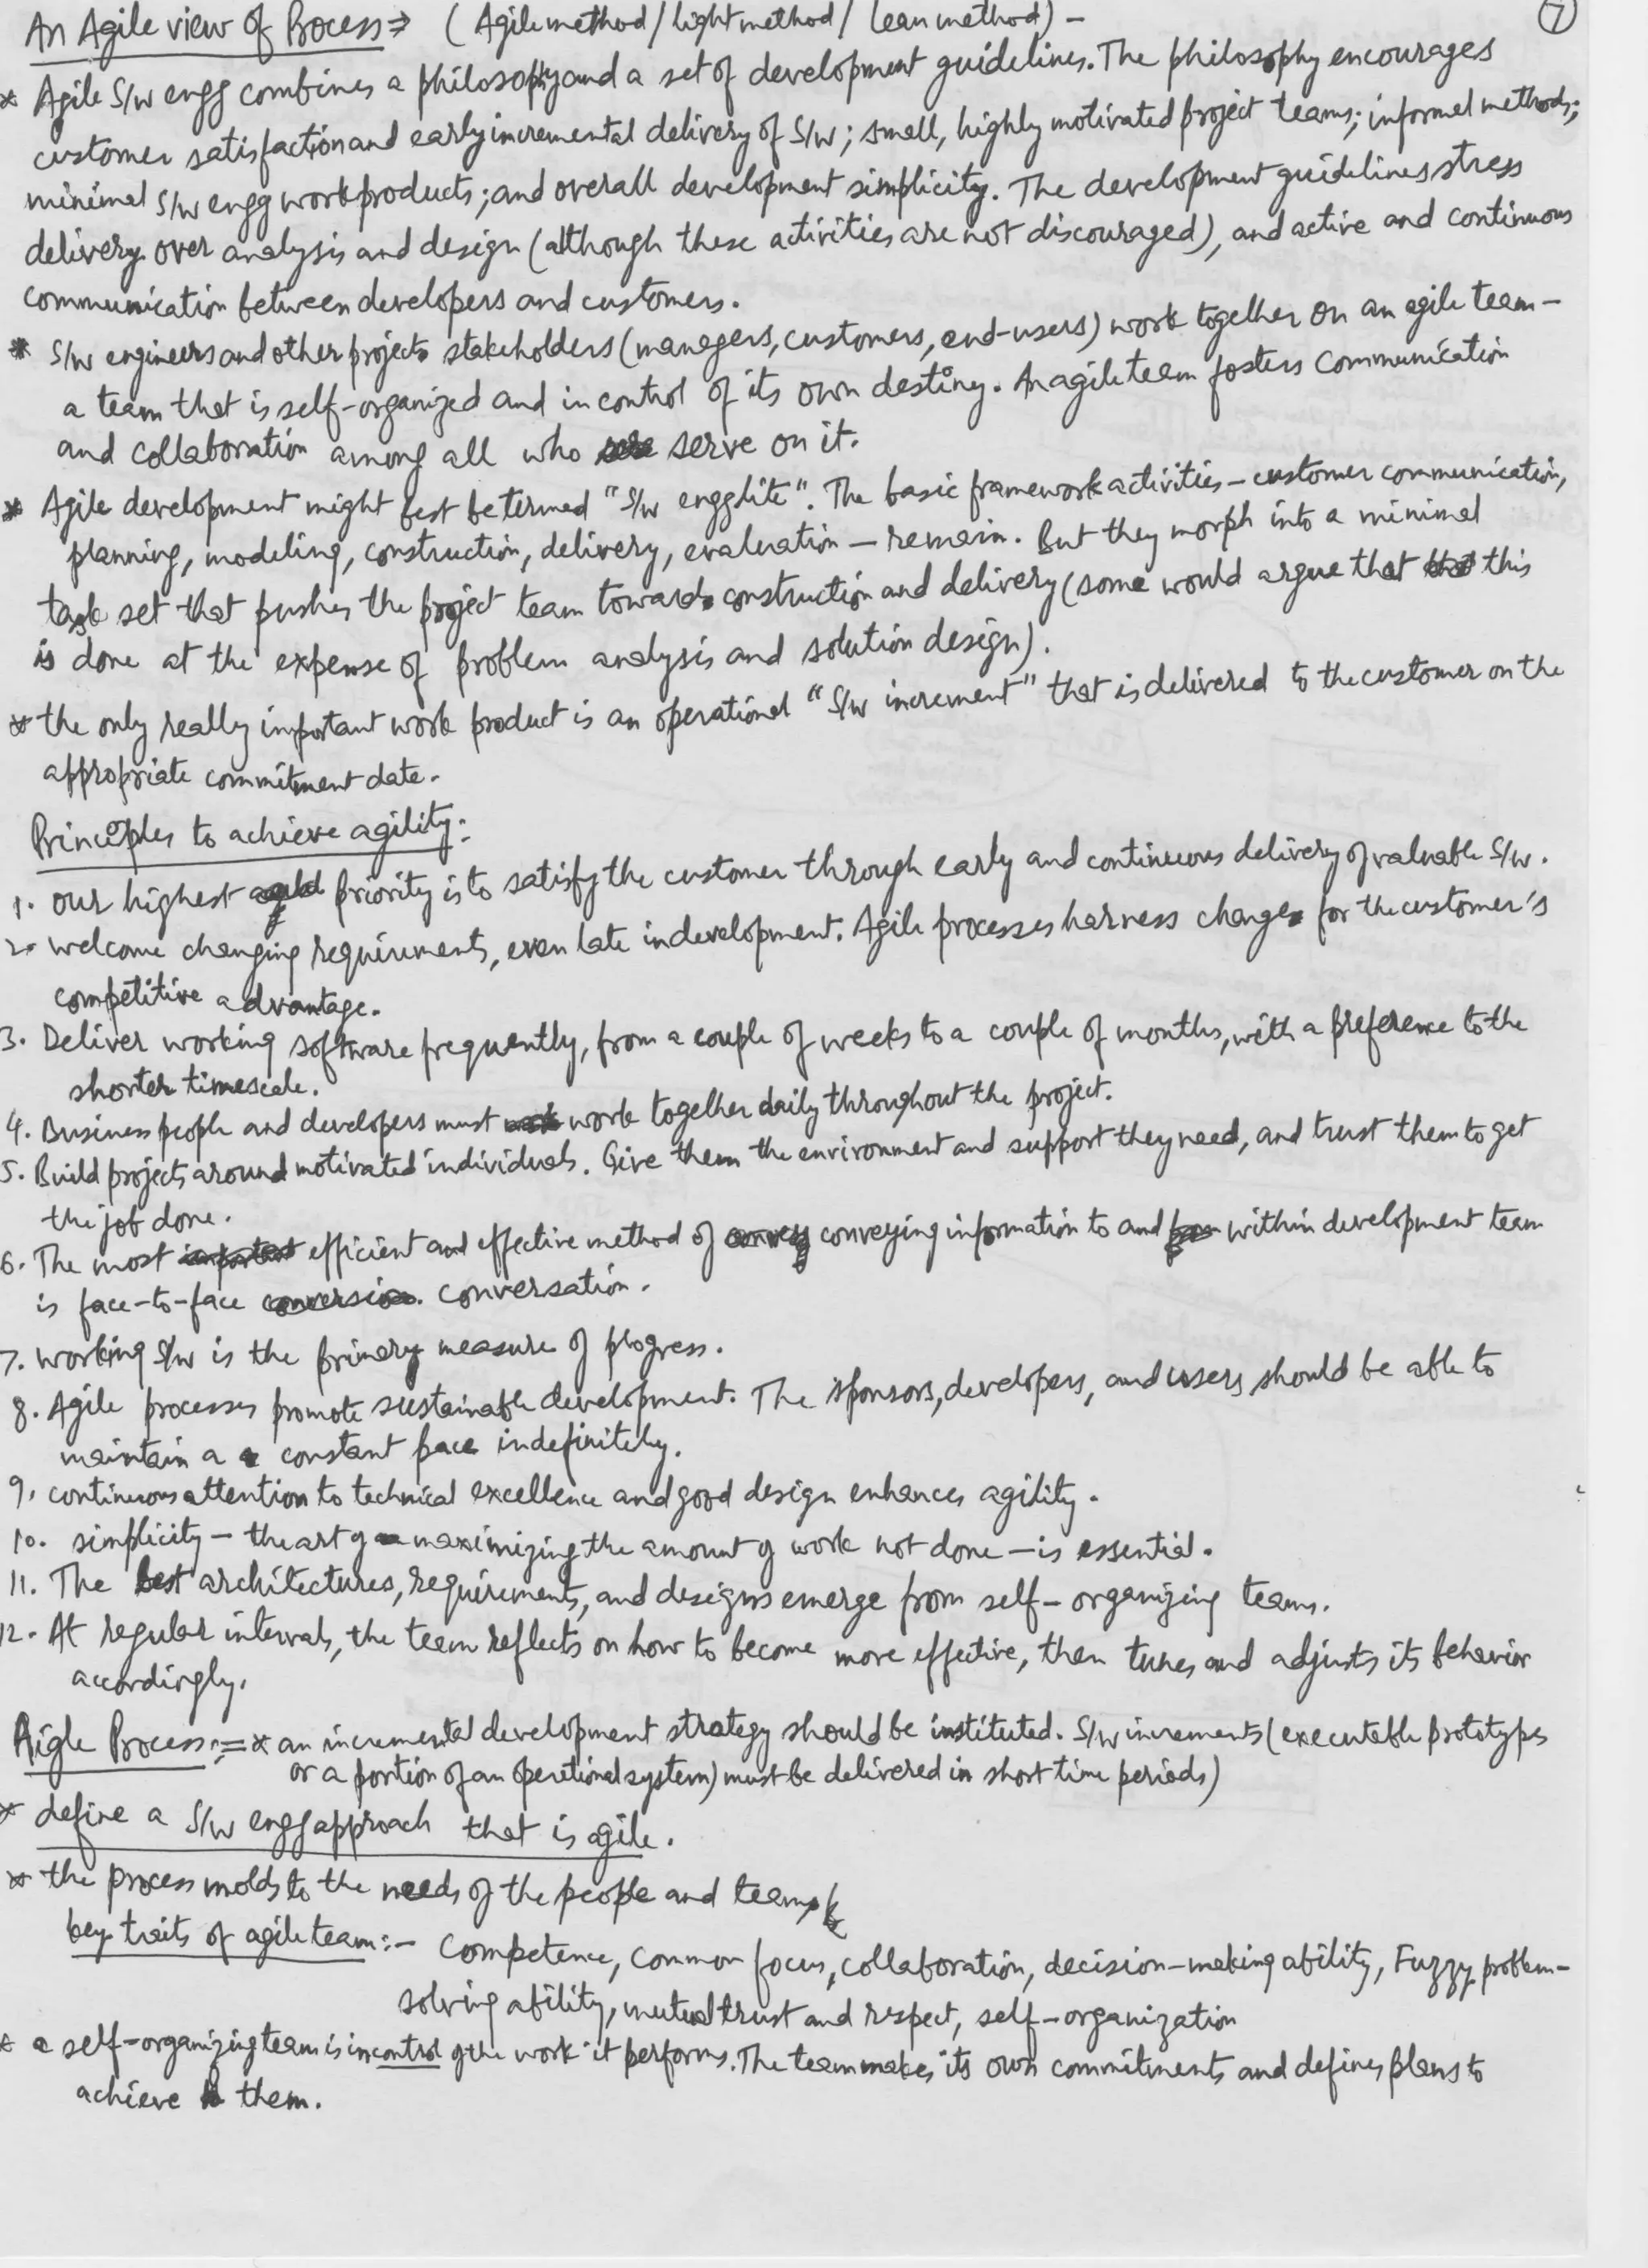 An Agile view of Process ⇒ (Agile method / light method / lean method) –
7
* Agile S/w engg combines a philosophy and a set of development guidelines. The philosophy encourages
customer satisfaction and early incremental delivery of S/w; small, highly motivated project teams; informal methods;
minimal S/w engg work products; and overall development simplicity. The development guidelines stress
delivery over analysis and design (although these activities are not discouraged), and active and continuous
communication between developers and customers.
* S/w engineers and other project stakeholders (managers, customers, end-users) work together on an agile team –
a team that is self-organized and in control of its own destiny. An agile team fosters communication
and collaboration among all who serve on it.
* Agile development might best be termed "S/w engg lite". The basic framework activities – customer communication,
planning, modeling, construction, delivery, evaluation – remain. But they morph into a minimal
task set that pushes the project team toward construction and delivery (some would argue that this
is done at the expense of problem analysis and solution design).
* the only really important work product is an operational "S/w increment" that is delivered to the customer on the
appropriate commitment date.
Principles to achieve agility:
1. our highest priority is to satisfy the customer through early and continuous delivery of valuable S/w.
2. welcome changing requirements, even late in development. Agile processes harness change for the customer's
competitive advantage.
3. Deliver working software frequently, from a couple of weeks to a couple of months, with a preference to the
shorter timescale.
4. Business people and developers must work together daily throughout the project.
5. Build projects around motivated individuals. Give them the environment and support they need, and trust them to get
the job done.
6. The most efficient and effective method of conveying information to and within development team
is face-to-face conversation.
7. working S/w is the primary measure of progress.
8. Agile processes promote sustainable development. The sponsors, developers, and users should be able to
maintain a constant pace indefinitely.
9. continuous attention to technical excellence and good design enhances agility.
10. simplicity – the art of maximizing the amount of work not done – is essential.
11. The best architectures, requirements, and designs emerge from self-organizing teams.
12. At regular intervals, the team reflects on how to become more effective, then tunes and adjusts its behavior
accordingly.
Aigle Process:= * an incremental development strategy should be instituted. S/w increments (executable prototypes
or a portion of an operational system) must be delivered in short time periods)
* define a S/w engg approach that is agile.
* the process molds to the needs of the people and teams
key traits of agile team:– Competence, Common focus, collaboration, decision-making ability, Fuzzy problem-
solving ability, mutual trust and respect, self-organization
* a self-organizing team is in control of the work it performs. The team makes its own commitments and defines plans to
achieve them.